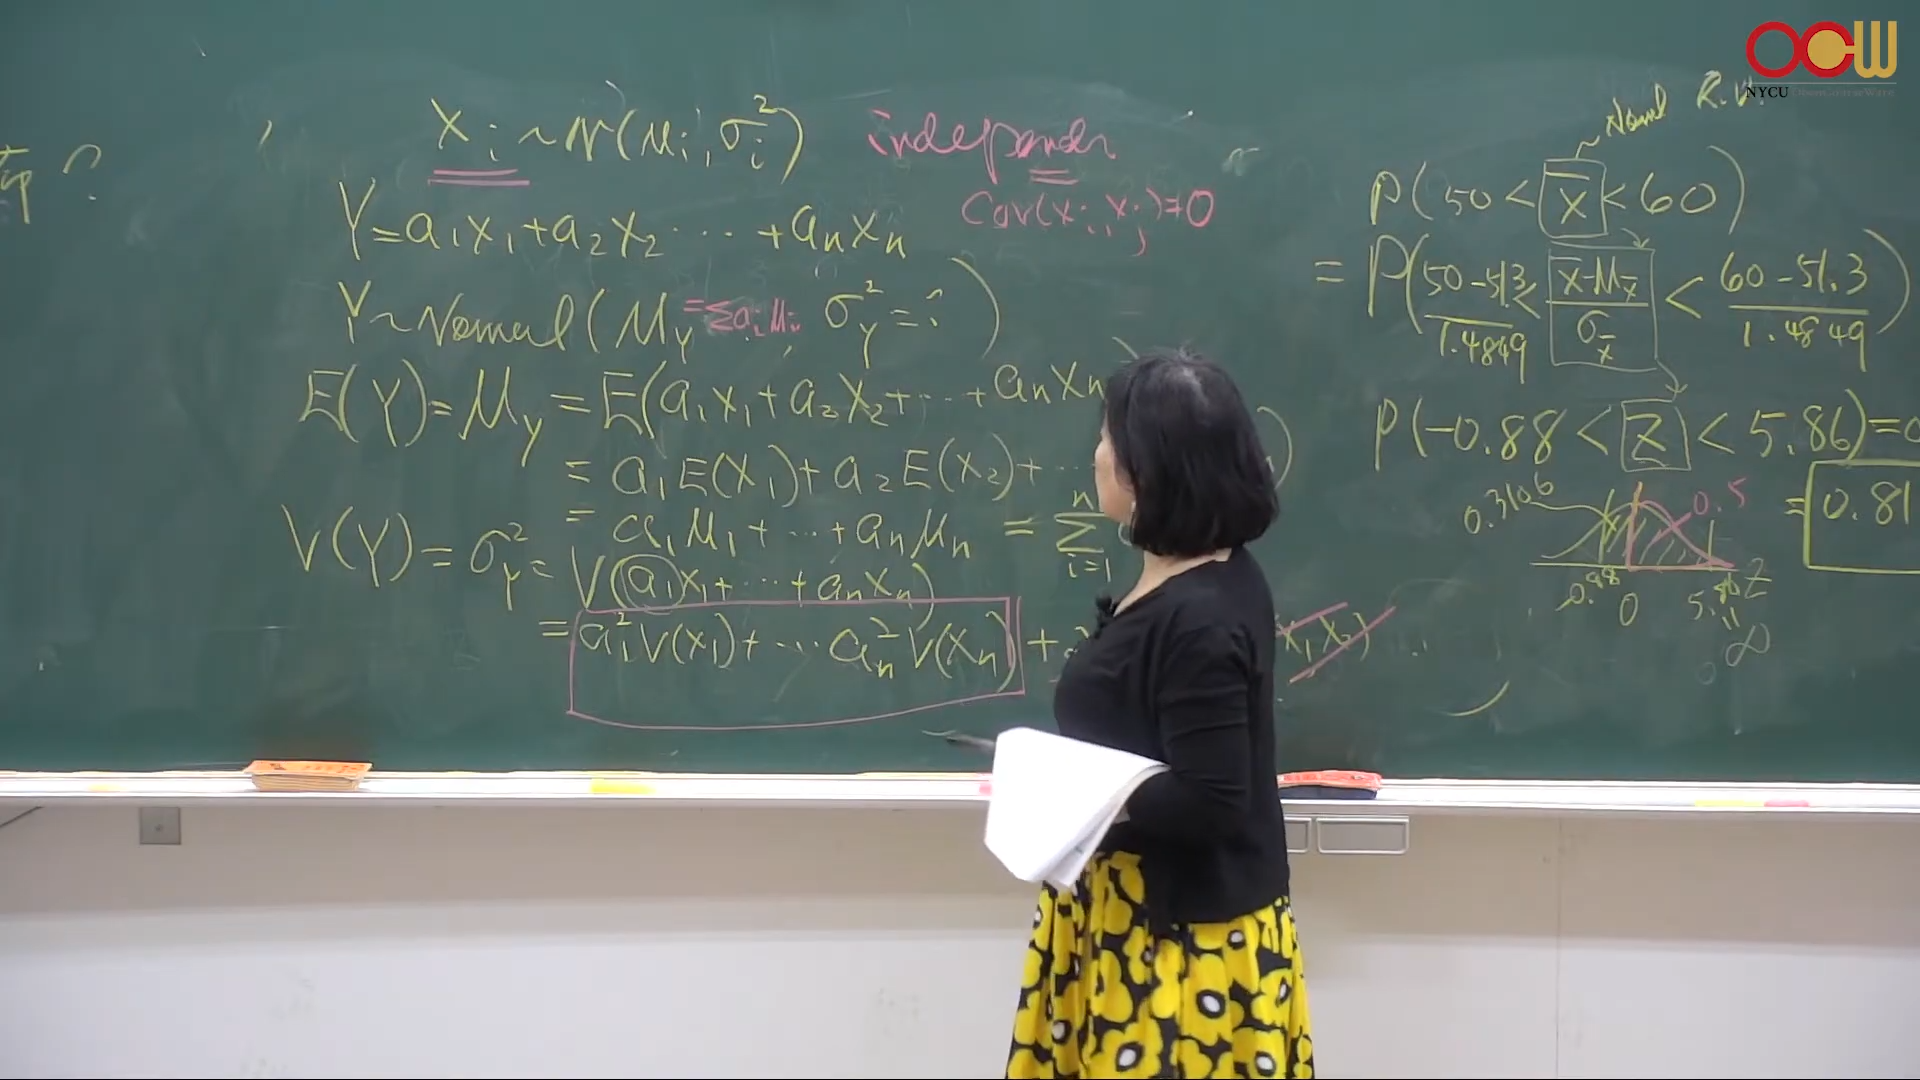 OCW
NYCU
Xᵢ ~ N(μᵢ, σᵢ²) independ
Cov(xᵢ, xⱼ)=0
Y=a₁x₁+a₂x₂ ... +aₙxₙ
Y~Normal(μ_Y =Σaᵢμᵢ, σ_Y²=?)
E(Y)=μ_Y = E(a₁x₁+a₂x₂+...+aₙxₙ
= a₁E(x₁)+a₂E(x₂)+...
= a₁μ₁+...+aₙμₙ = Σⁿᵢ₌₁
V(Y)=σ_Y²= V(a₁x₁+...+aₙxₙ)
= a₁²V(x₁)+...aₙ²V(xₙ) + x₁x₂) ..
~ Normal R.V.
P(50 < x̄ < 60)
= P((50-51.3)/1.4849 < (x̄-μ_x̄)/σ_x̄ < (60-51.3)/1.4849)
P(-0.88 < Z < 5.86)=
0.3106 0.5
= 0.81
-0.88 0 5.86 Z
∞